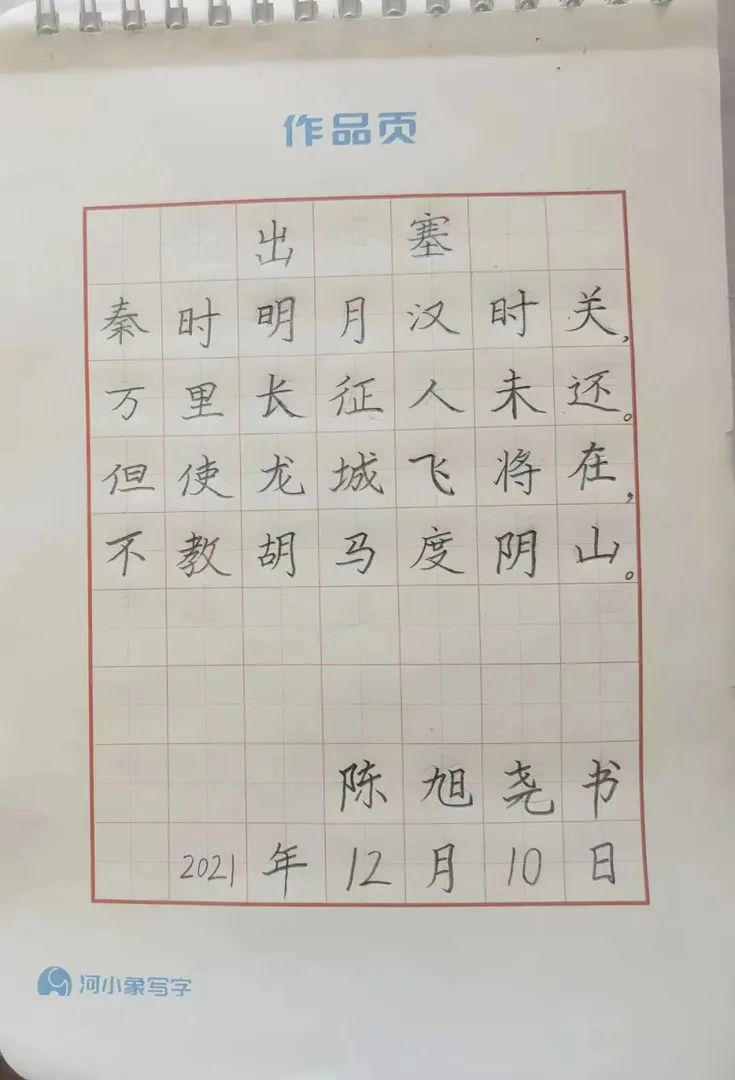 作品页
出塞
秦时明月汉时关,
万里长征人未还。
但使龙城飞将在,
不教胡马度阴山。
陈旭尧书
2021年12月10日
河小象写字